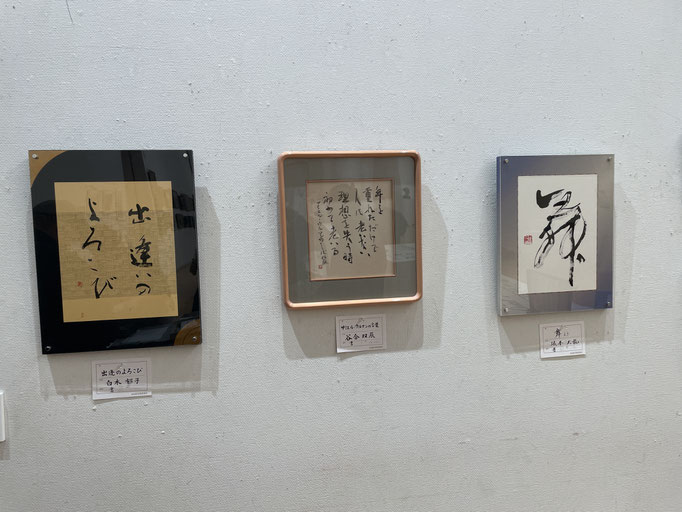 出逢いの
よろこび
出逢のよろこび
白木 郁子
書
年を
重ねただけで
人は老いない
理想を失う時
初めて老いる
谷合
書
舞
舞
書